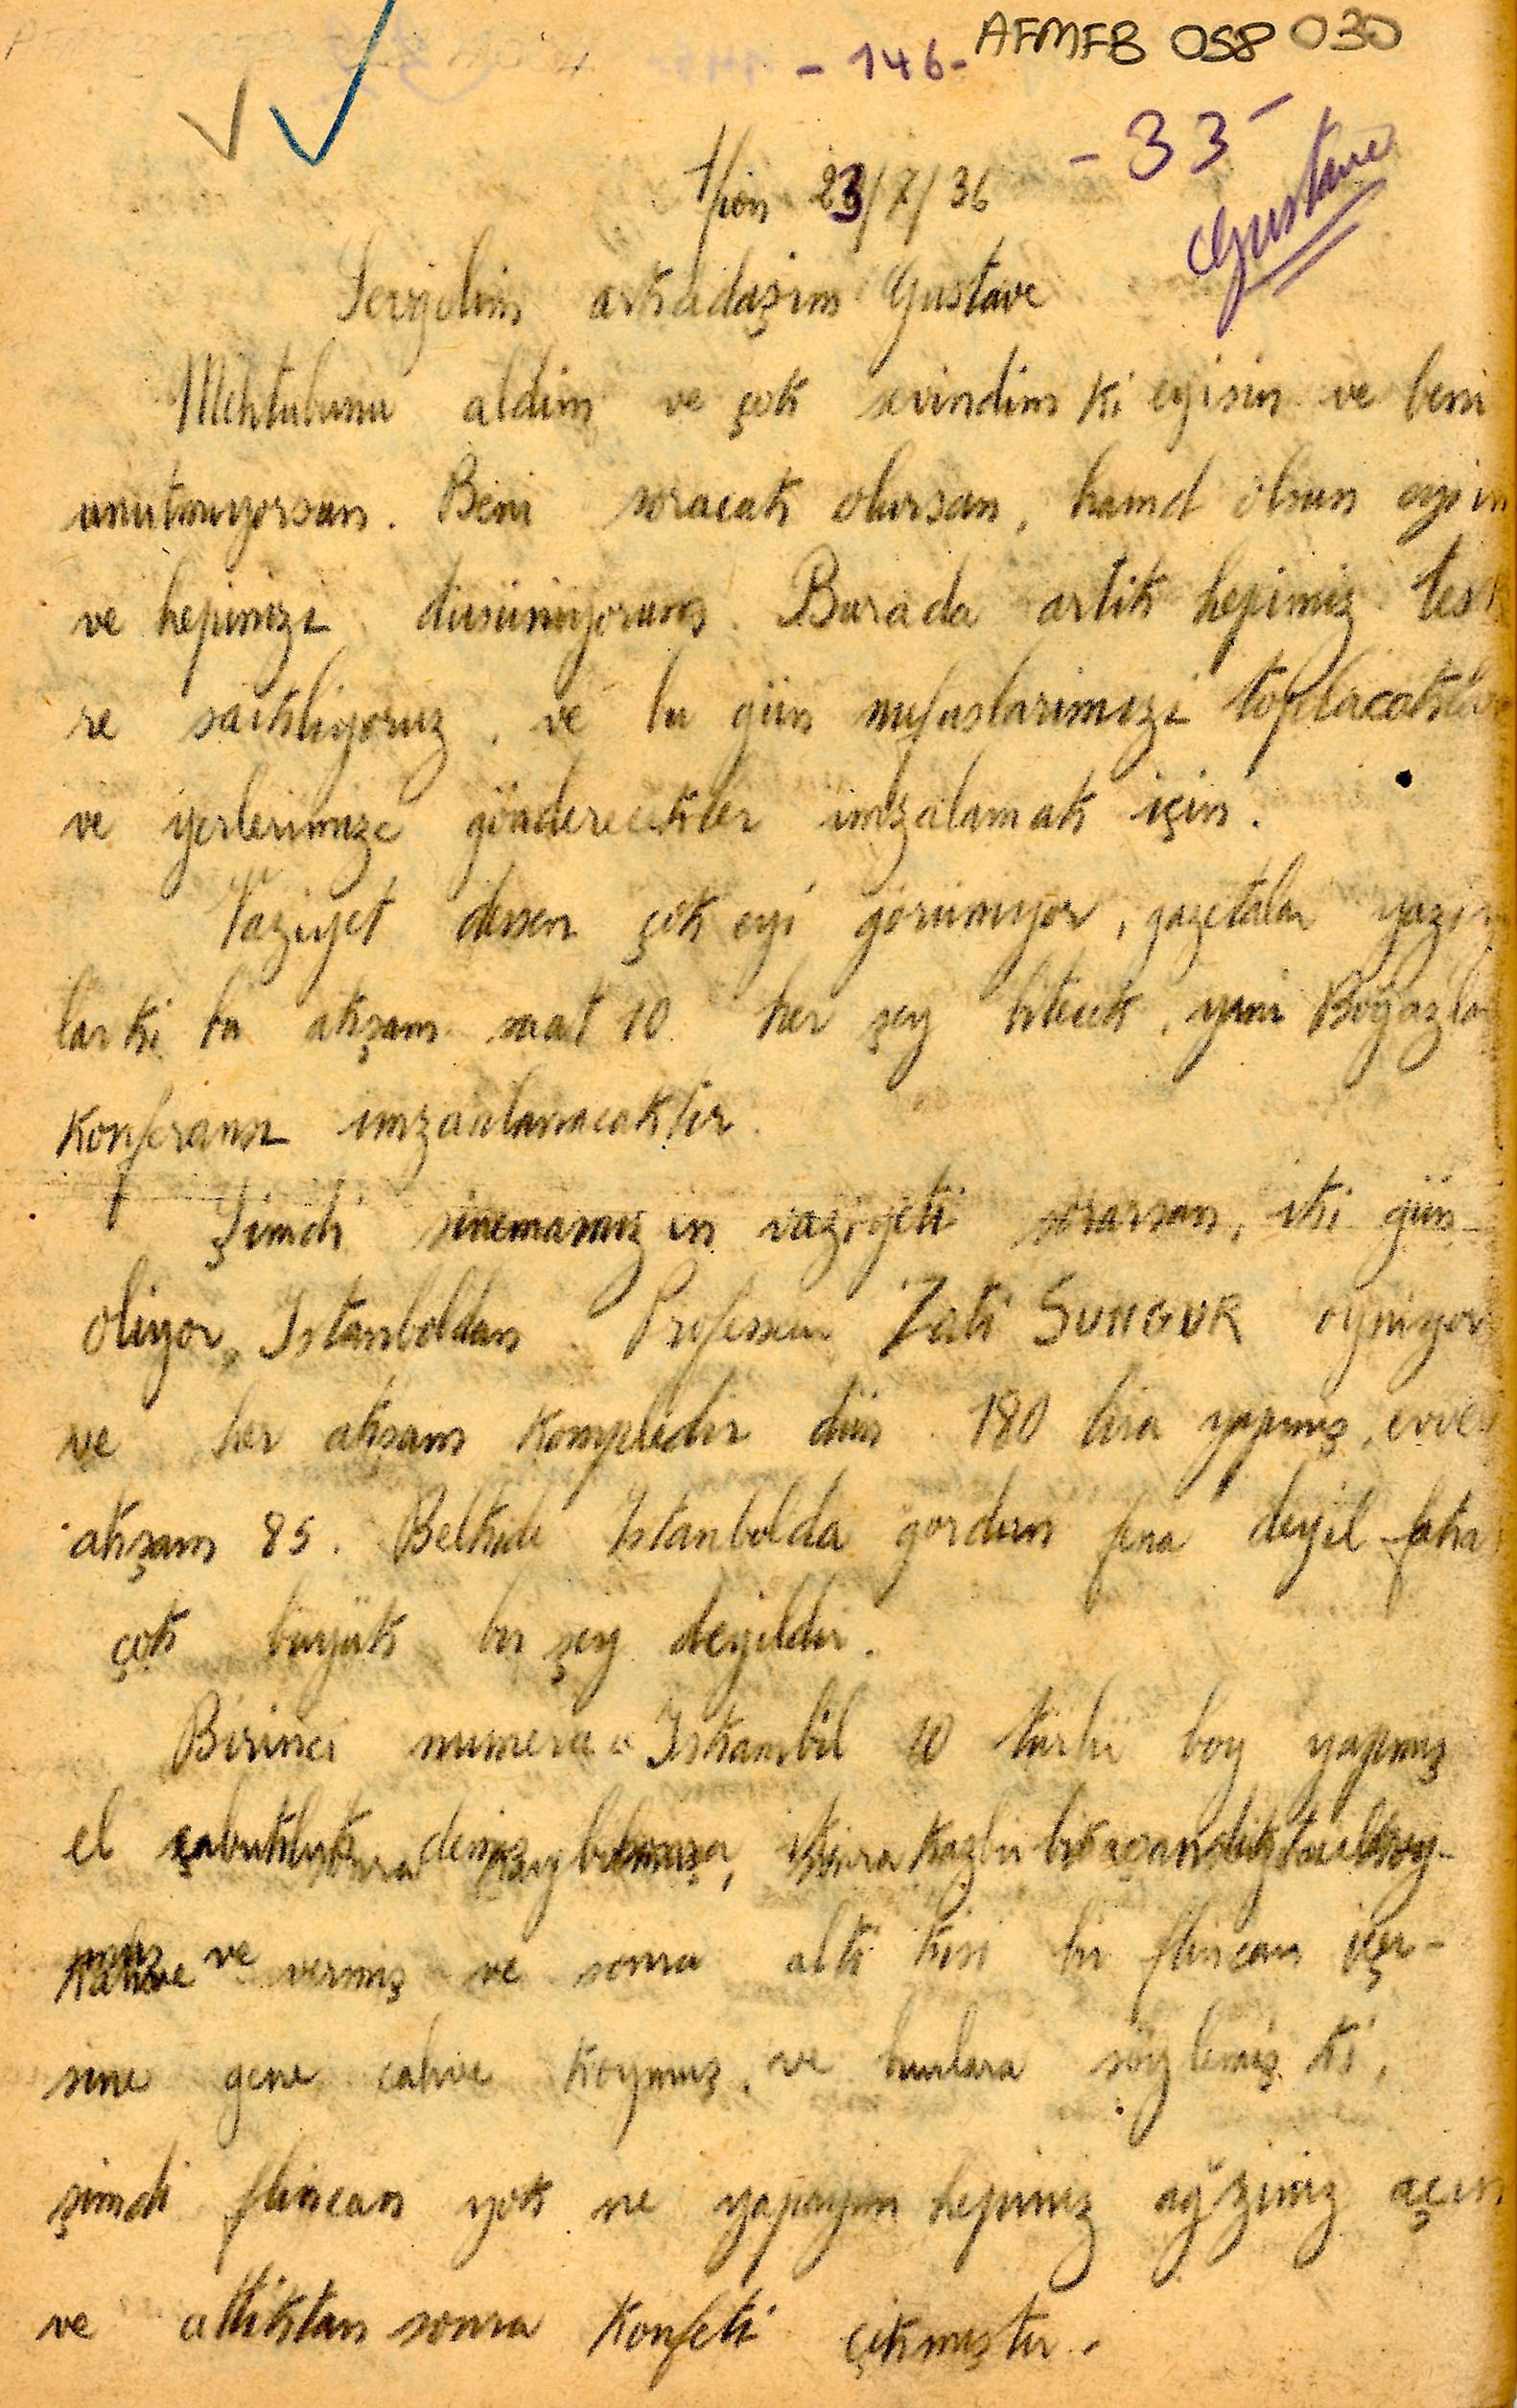 AFMFB 058 030
- 146 -
- 33 -
Gustave
23/7/36
Sevgilim arkadaşım Gustave
Mektubunu aldim ve çok sevindim ki eyisin ve beni
unutmuyorsun. Beni soracak olursan, hamd olsun eyim
ve hepinizi düsünüyorum. Burada artik hepimiz
ve bu gün nufuslarimizi toplacaklar
ve yerlerimize gönderecekler imzalamak için.
Vaziyet dersen çok eyi görünüyor, gazetalar
lar ki bu akşam saat 10 her şey bitecek, yani Boğazlar
Konferansı imzalanacaktir.
Şimdi sinemamızin vaziyeti sorarsan, iki gün
oliyor, Istanboldan Professeur Zati SUNGUR oyniyor
ve her akşam kompledir dün 180 lira yapmış, evvel
akşam 85. Belkide Istanbolda gordun fena deyil faka
çok büyük bir şey deyildir.
Birinci numero Iskambil 10 türlü boy yapmış
el
Kahve ve vermiş ve sonra alti kisi bir flincan içer-
sine gene cahve koymuş, ve bunlara söylemiş ki,
şimdi flincan yok ne yapayim hepiniz ağziniz açın
ve attiktan sonra Konfeti çikmıştır.